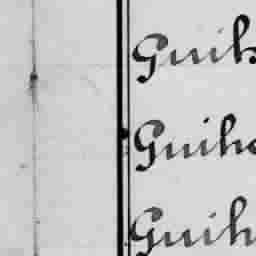 Guih
Guiho
Guih